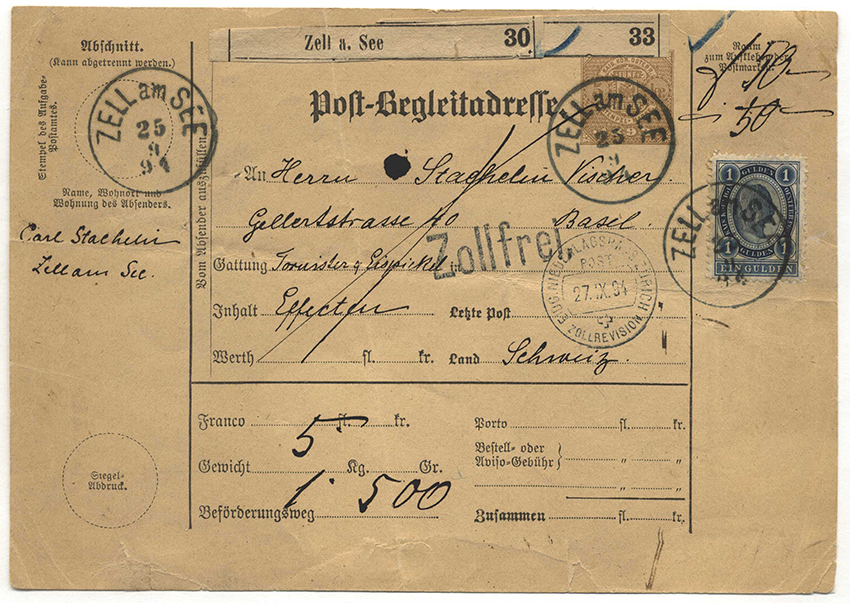 Abschnitt.
(Kann abgetrennt werden.)
Stempel des Aufgabe-
Postamtes.
ZELL am SEE
25
9
94
Name, Wohnort und
Wohnung des Absenders.
Carl Stachelin
Zell am See.
Siegel-
Abdruck.
Zell a. See 30 33
Post-Begleitadresse
ZELL am SEE
25
9
Vom Absender auszufüllen
An Herrn Stachelin Vischer.
Gellertstrasse 40 Basel.
Zollfrei
Gattung Tornister & Eispickel in
Inhalt Effecten Letzte Post
Werth fl. kr. Land Schweiz.
NIEDERLAGSHAUS ZÜRICH
POST
27.IX.94
ZOLLREVISION
Franco fl. kr.
5
Gewicht Kg. Gr.
1 500
Beförderungsweg
Porto fl. kr.
Bestell- oder
Aviso-Gebühr „ „
„ „
Zusammen fl. kr.
Raum
zum Aufkleben der
Postmarken.
1.50
50
1 GULDEN 1
1 GULDEN 1
EIN GULDEN
ZELL am SEE